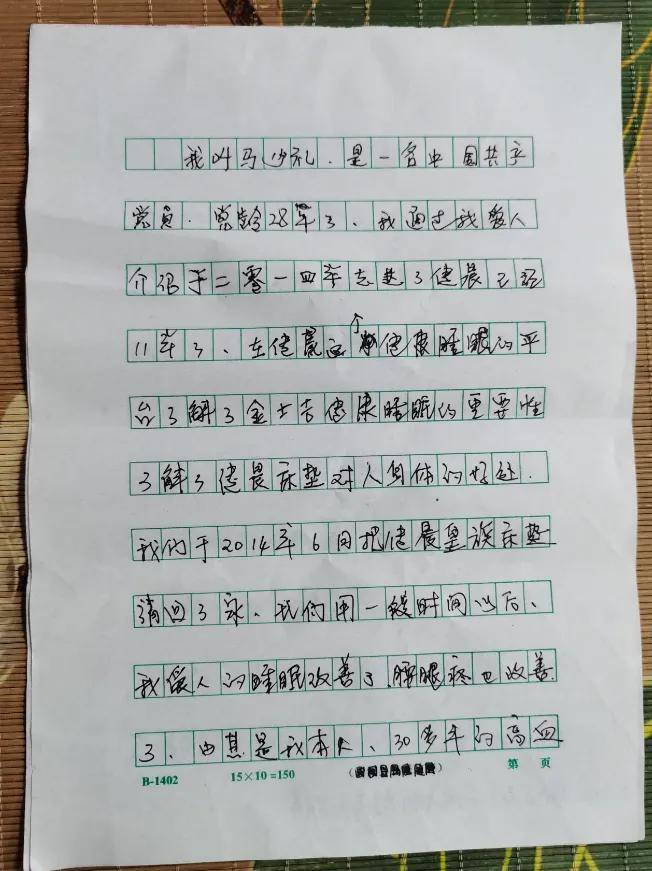 我叫马沙礼.是一名中国共产
党员.党龄28年了、我通过我爱人
介绍于二零一四年走进了健晨已经
11年了、在健晨这个健康睡眠的平
台了解了金士吉健康睡眠的重要性
了解了健晨床垫对人身体的好处.
我们于2014年6月把健晨皇族床垫
请回了家、我们用一段时间以后、
我爱人的睡眠改善了.腰腿疼也改善
了、由其是我本人、30多年的高血
B-1402 15×10=150 第 页